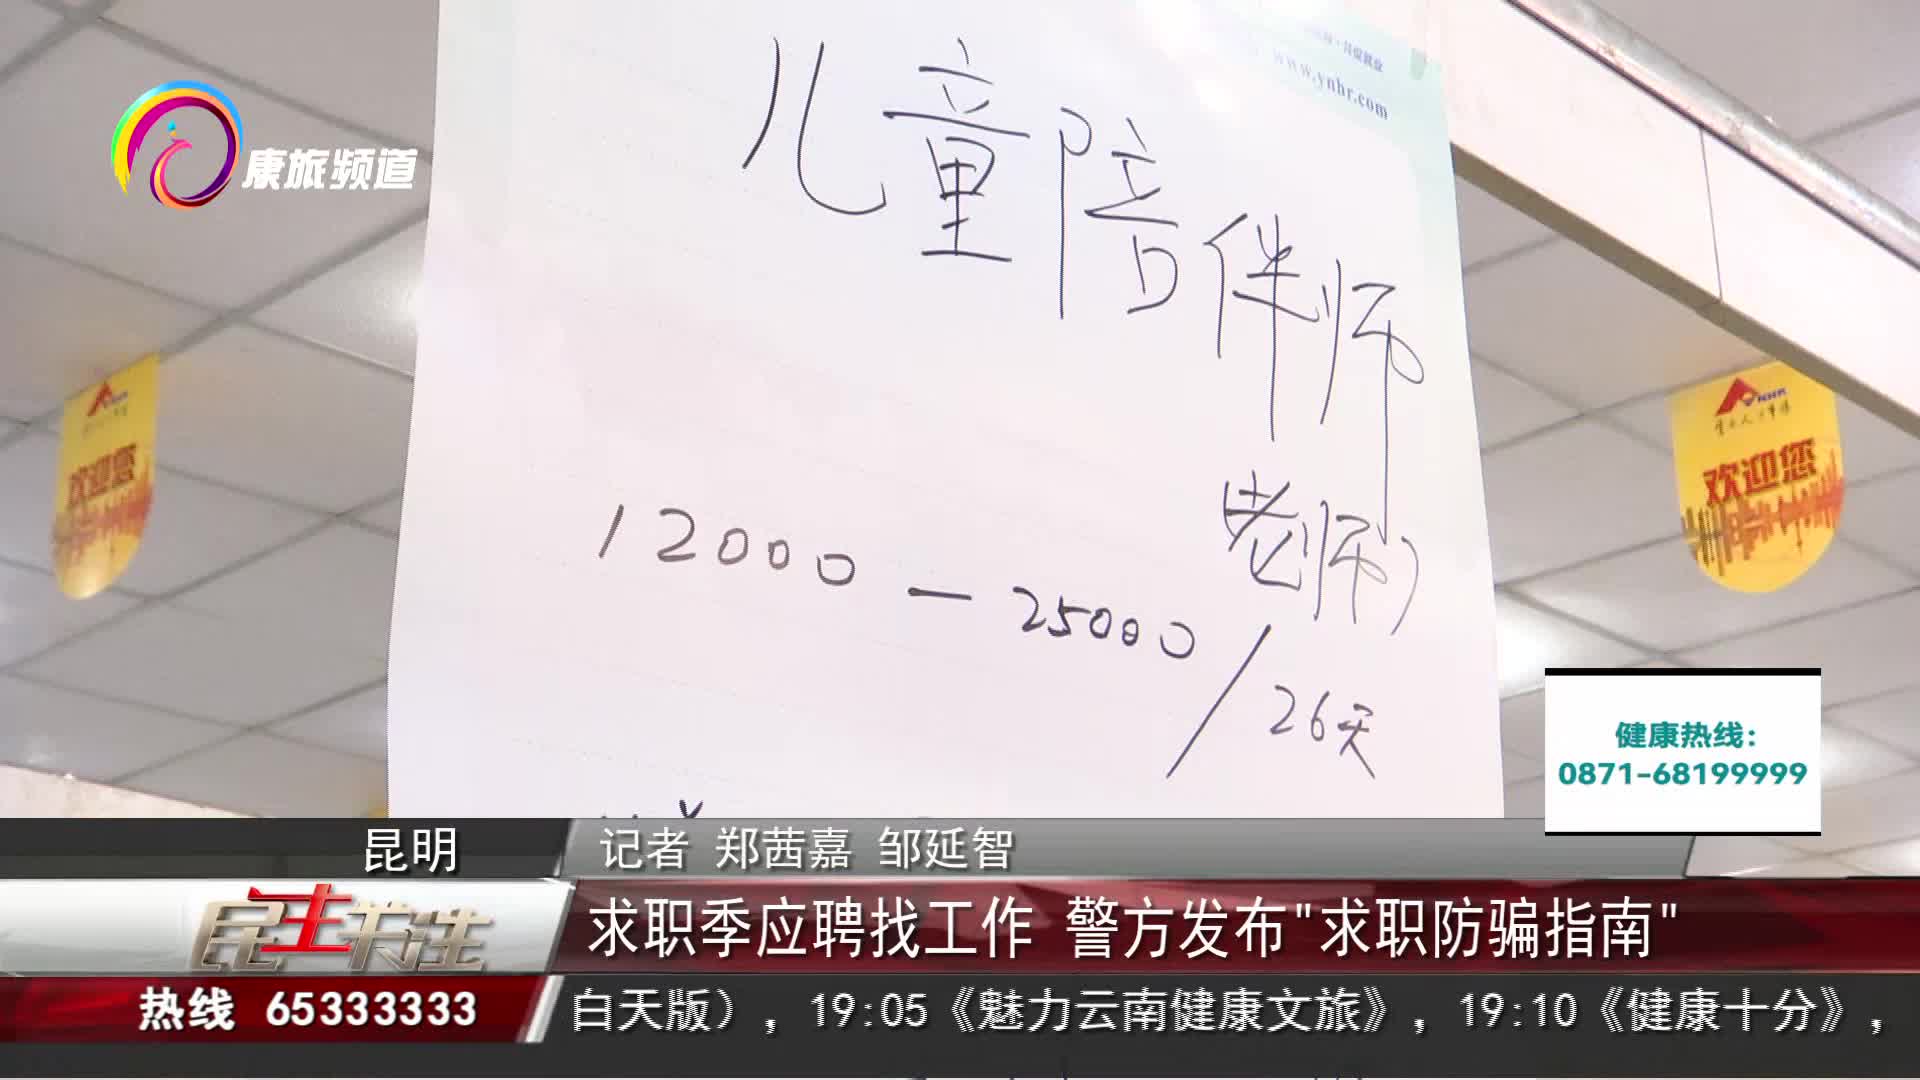 康旅频道
www.ynhr.com
儿童陪伴师
老师)
12000—25000/26天
欢迎您
欢迎您
健康热线:
0871-68199999
昆明
记者 郑茜嘉 邹延智
民主关注
求职季应聘找工作 警方发布"求职防骗指南"
热线 65333333
白天版），19:05《魅力云南健康文旅》，19:10《健康十分》，